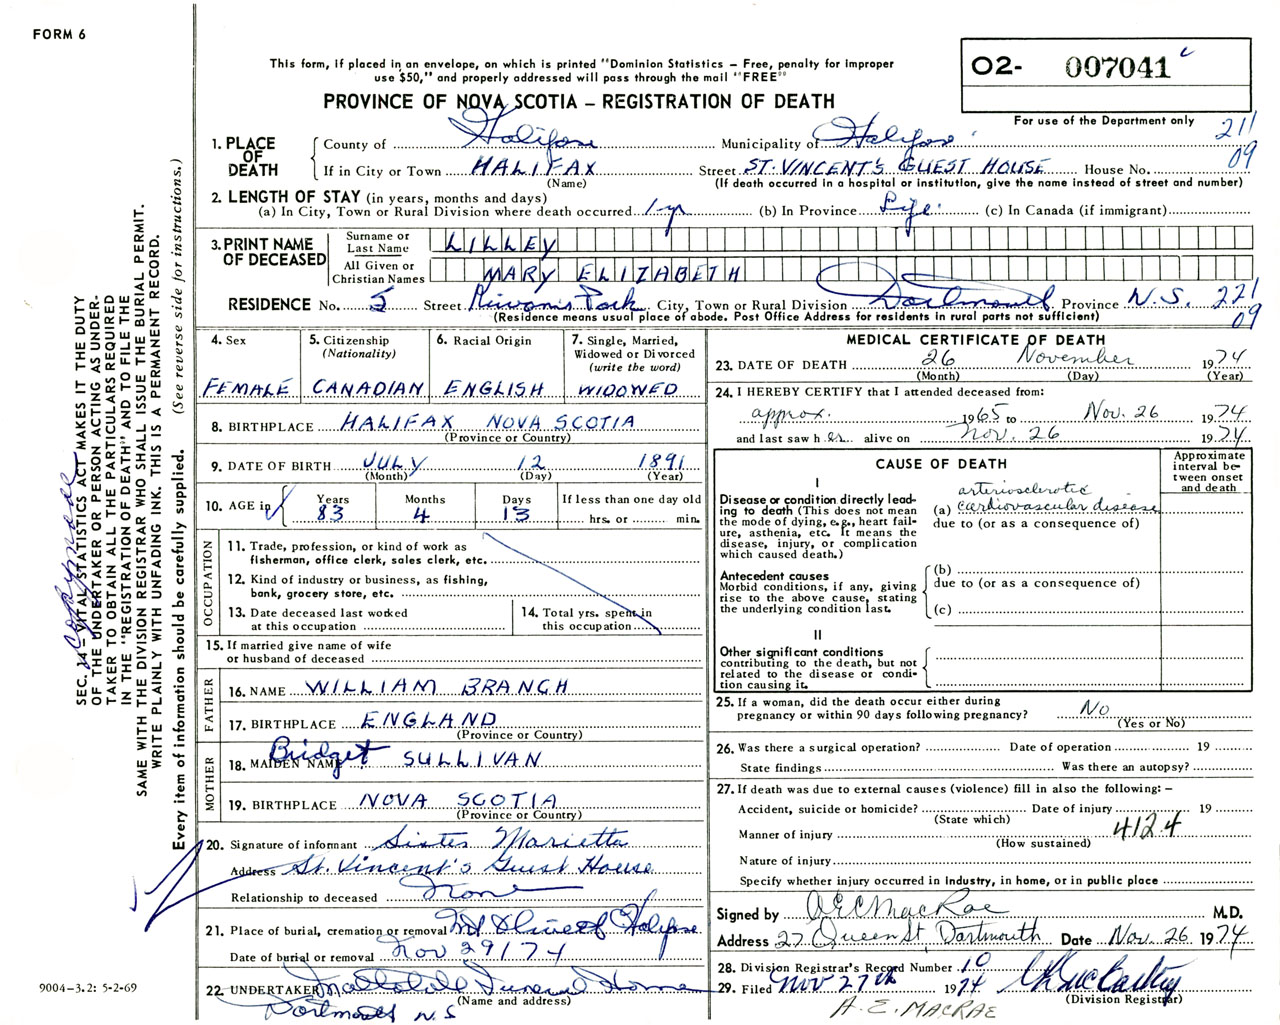 FORM 6
This form, if placed in an envelope, on which is printed "Dominion Statistics – Free, penalty for improper
use $50," and properly addressed will pass through the mail "FREE"
PROVINCE OF NOVA SCOTIA – REGISTRATION OF DEATH
O2- 007041
For use of the Department only
211
09
1. PLACE OF DEATH
County of Halifax Municipality of Halifax
If in City or Town HALIFAX Street ST. VINCENT'S GUEST HOUSE House No.
(Name) (If death occurred in a hospital or institution, give the name instead of street and number)
2. LENGTH OF STAY (in years, months and days)
(a) In City, Town or Rural Division where death occurred 1 yr (b) In Province Life (c) In Canada (if immigrant)
3. PRINT NAME OF DECEASED
Surname or Last Name LILLEY
All Given or Christian Names MARY ELIZABETH
RESIDENCE No. 5 Street Kiwanis Park City, Town or Rural Division Dartmouth Province N.S. 221
09
(Residence means usual place of abode. Post Office Address for residents in rural parts not sufficient)
4. Sex
FEMALE
5. Citizenship
(Nationality)
CANADIAN
6. Racial Origin
ENGLISH
7. Single, Married,
Widowed or Divorced
(write the word)
WIDOWED
8. BIRTHPLACE HALIFAX NOVA SCOTIA
(Province or Country)
9. DATE OF BIRTH JULY 12 1891
(Month) (Day) (Year)
10. AGE in
Years 83
Months 4
Days 13
If less than one day old
hrs. or min.
OCCUPATION
11. Trade, profession, or kind of work as
fisherman, office clerk, sales clerk, etc.
12. Kind of industry or business, as fishing,
bank, grocery store, etc.
13. Date deceased last worked
at this occupation
14. Total yrs. spent in
this occupation
15. If married give name of wife
or husband of deceased
FATHER
16. NAME WILLIAM BRANCH
17. BIRTHPLACE ENGLAND
(Province or Country)
MOTHER
18. MAIDEN NAME Bridget SULLIVAN
19. BIRTHPLACE NOVA SCOTIA
(Province or Country)
20. Signature of informant Sister Marietta
Address St. Vincent's Guest House
Relationship to deceased None
21. Place of burial, cremation or removal Mt Olivet Halifax
Date of burial or removal Nov 29/74
22. UNDERTAKER Mattatall Funeral Home
(Name and address)
Dartmouth N.S
MEDICAL CERTIFICATE OF DEATH
23. DATE OF DEATH 26 November 1974
(Month) (Day) (Year)
24. I HEREBY CERTIFY that I attended deceased from:
approx. 1965 to Nov. 26 1974
and last saw her alive on Nov. 26 1974
CAUSE OF DEATH
Approximate
interval be-
tween onset
and death
I
Disease or condition directly lead-
ing to death (This does not mean
the mode of dying, e.g., heart fail-
ure, asthenia, etc. It means the
disease, injury, or complication
which caused death.)
arteriosclerotic
(a) cardiovascular disease
due to (or as a consequence of)
Antecedent causes
Morbid conditions, if any, giving
rise to the above cause, stating
the underlying condition last.
(b)
due to (or as a consequence of)
(c)
II
Other significant conditions
contributing to the death, but not
related to the disease or condi-
tion causing it.
25. If a woman, did the death occur either during
pregnancy or within 90 days following pregnancy? No
(Yes or No)
26. Was there a surgical operation? Date of operation 19
State findings Was there an autopsy?
27. If death was due to external causes (violence) fill in also the following: –
Accident, suicide or homicide? Date of injury 19
(State which)
4124
Manner of injury
(How sustained)
Nature of injury
Specify whether injury occurred in industry, in home, or in public place
Signed by A E MacRae M.D.
Address 27 Queen St, Dartmouth Date Nov. 26 1974
28. Division Registrar's Record Number 10
29. Filed Nov 27th 1974
(Division Registrar)
A. E. MACRAE
SEC. 14 – VITAL STATISTICS ACT MAKES IT THE DUTY
OF THE UNDERTAKER OR PERSON ACTING AS UNDER-
TAKER TO OBTAIN ALL THE PARTICULARS REQUIRED
IN THE "REGISTRATION OF DEATH" AND TO FILE THE
SAME WITH THE DIVISION REGISTRAR WHO SHALL ISSUE THE BURIAL PERMIT.
WRITE PLAINLY WITH UNFADING INK. THIS IS A PERMANENT RECORD.
Every item of information should be carefully supplied. (See reverse side for instructions.)
9004-3.2: 5-2-69